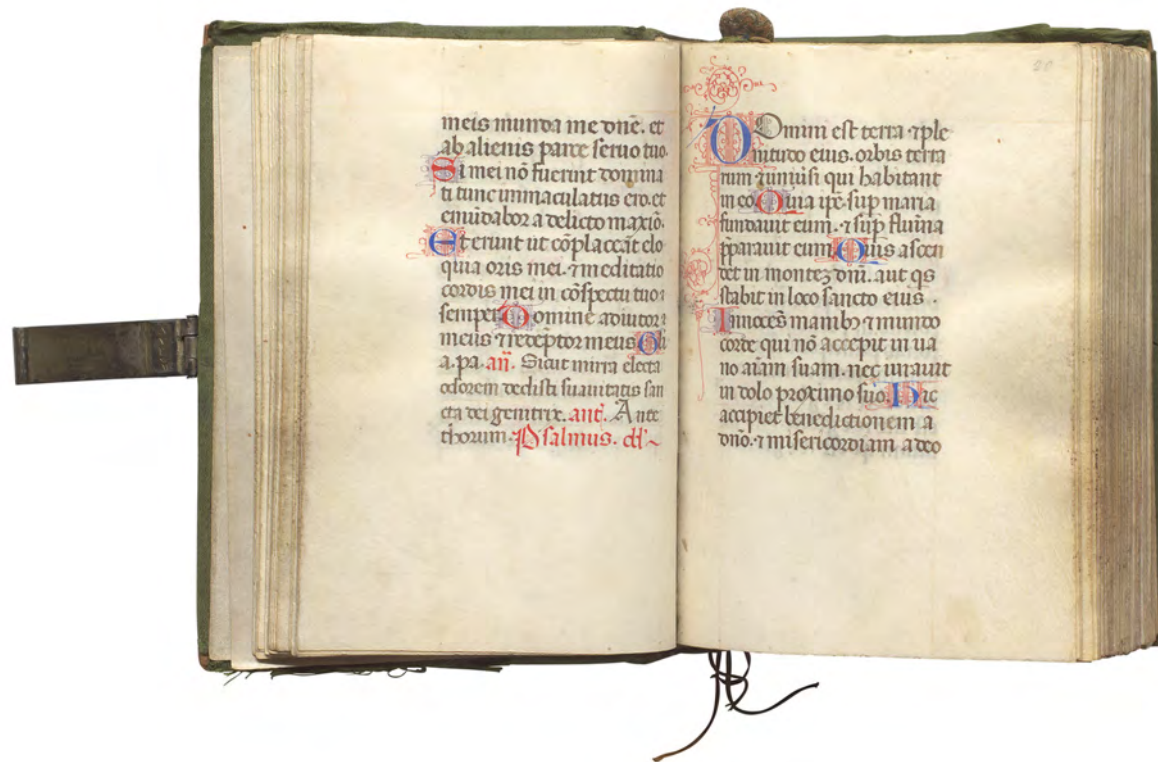 meis munda me dñe. et
ab alienis parce seruo tuo.
Si mei nõ fuerint domina
ti tunc immaculatus ero. et
emũdabor a delicto maxiõ.
Et erunt ut cõplaceãt elo
quia oris mei. ⁊ meditatio
cordis mei in cõspectu tuo
semper Domine adiutor
meus ⁊ redẽptor meus Gl̃i
a. pa. añ. Sicut mirra electa
odorem dedisti suauitatis san
cta dei genitrix. ant̃. Ante
thorum. Psalmus. dd̃
20
Domini est terra ⁊ ple
nitudo eius. orbis terra
rum ⁊ uniũsi qui habitant
in eo. Quia ip̃e. sup̃ maria
fundauit eum. ⁊ sup̃ flumina
p̃parauit eum. Quis ascen
det in montez dñi. aut q̃s
stabit in loco sancto eius.
Innocẽs manibꝫ ⁊ mundo
corde qui nõ accepit in ua
no aĩam suam. nec iurauit
in dolo proximo suo. Hic
accipiet benedictionem a
dñо. ⁊ misericordiam a deo